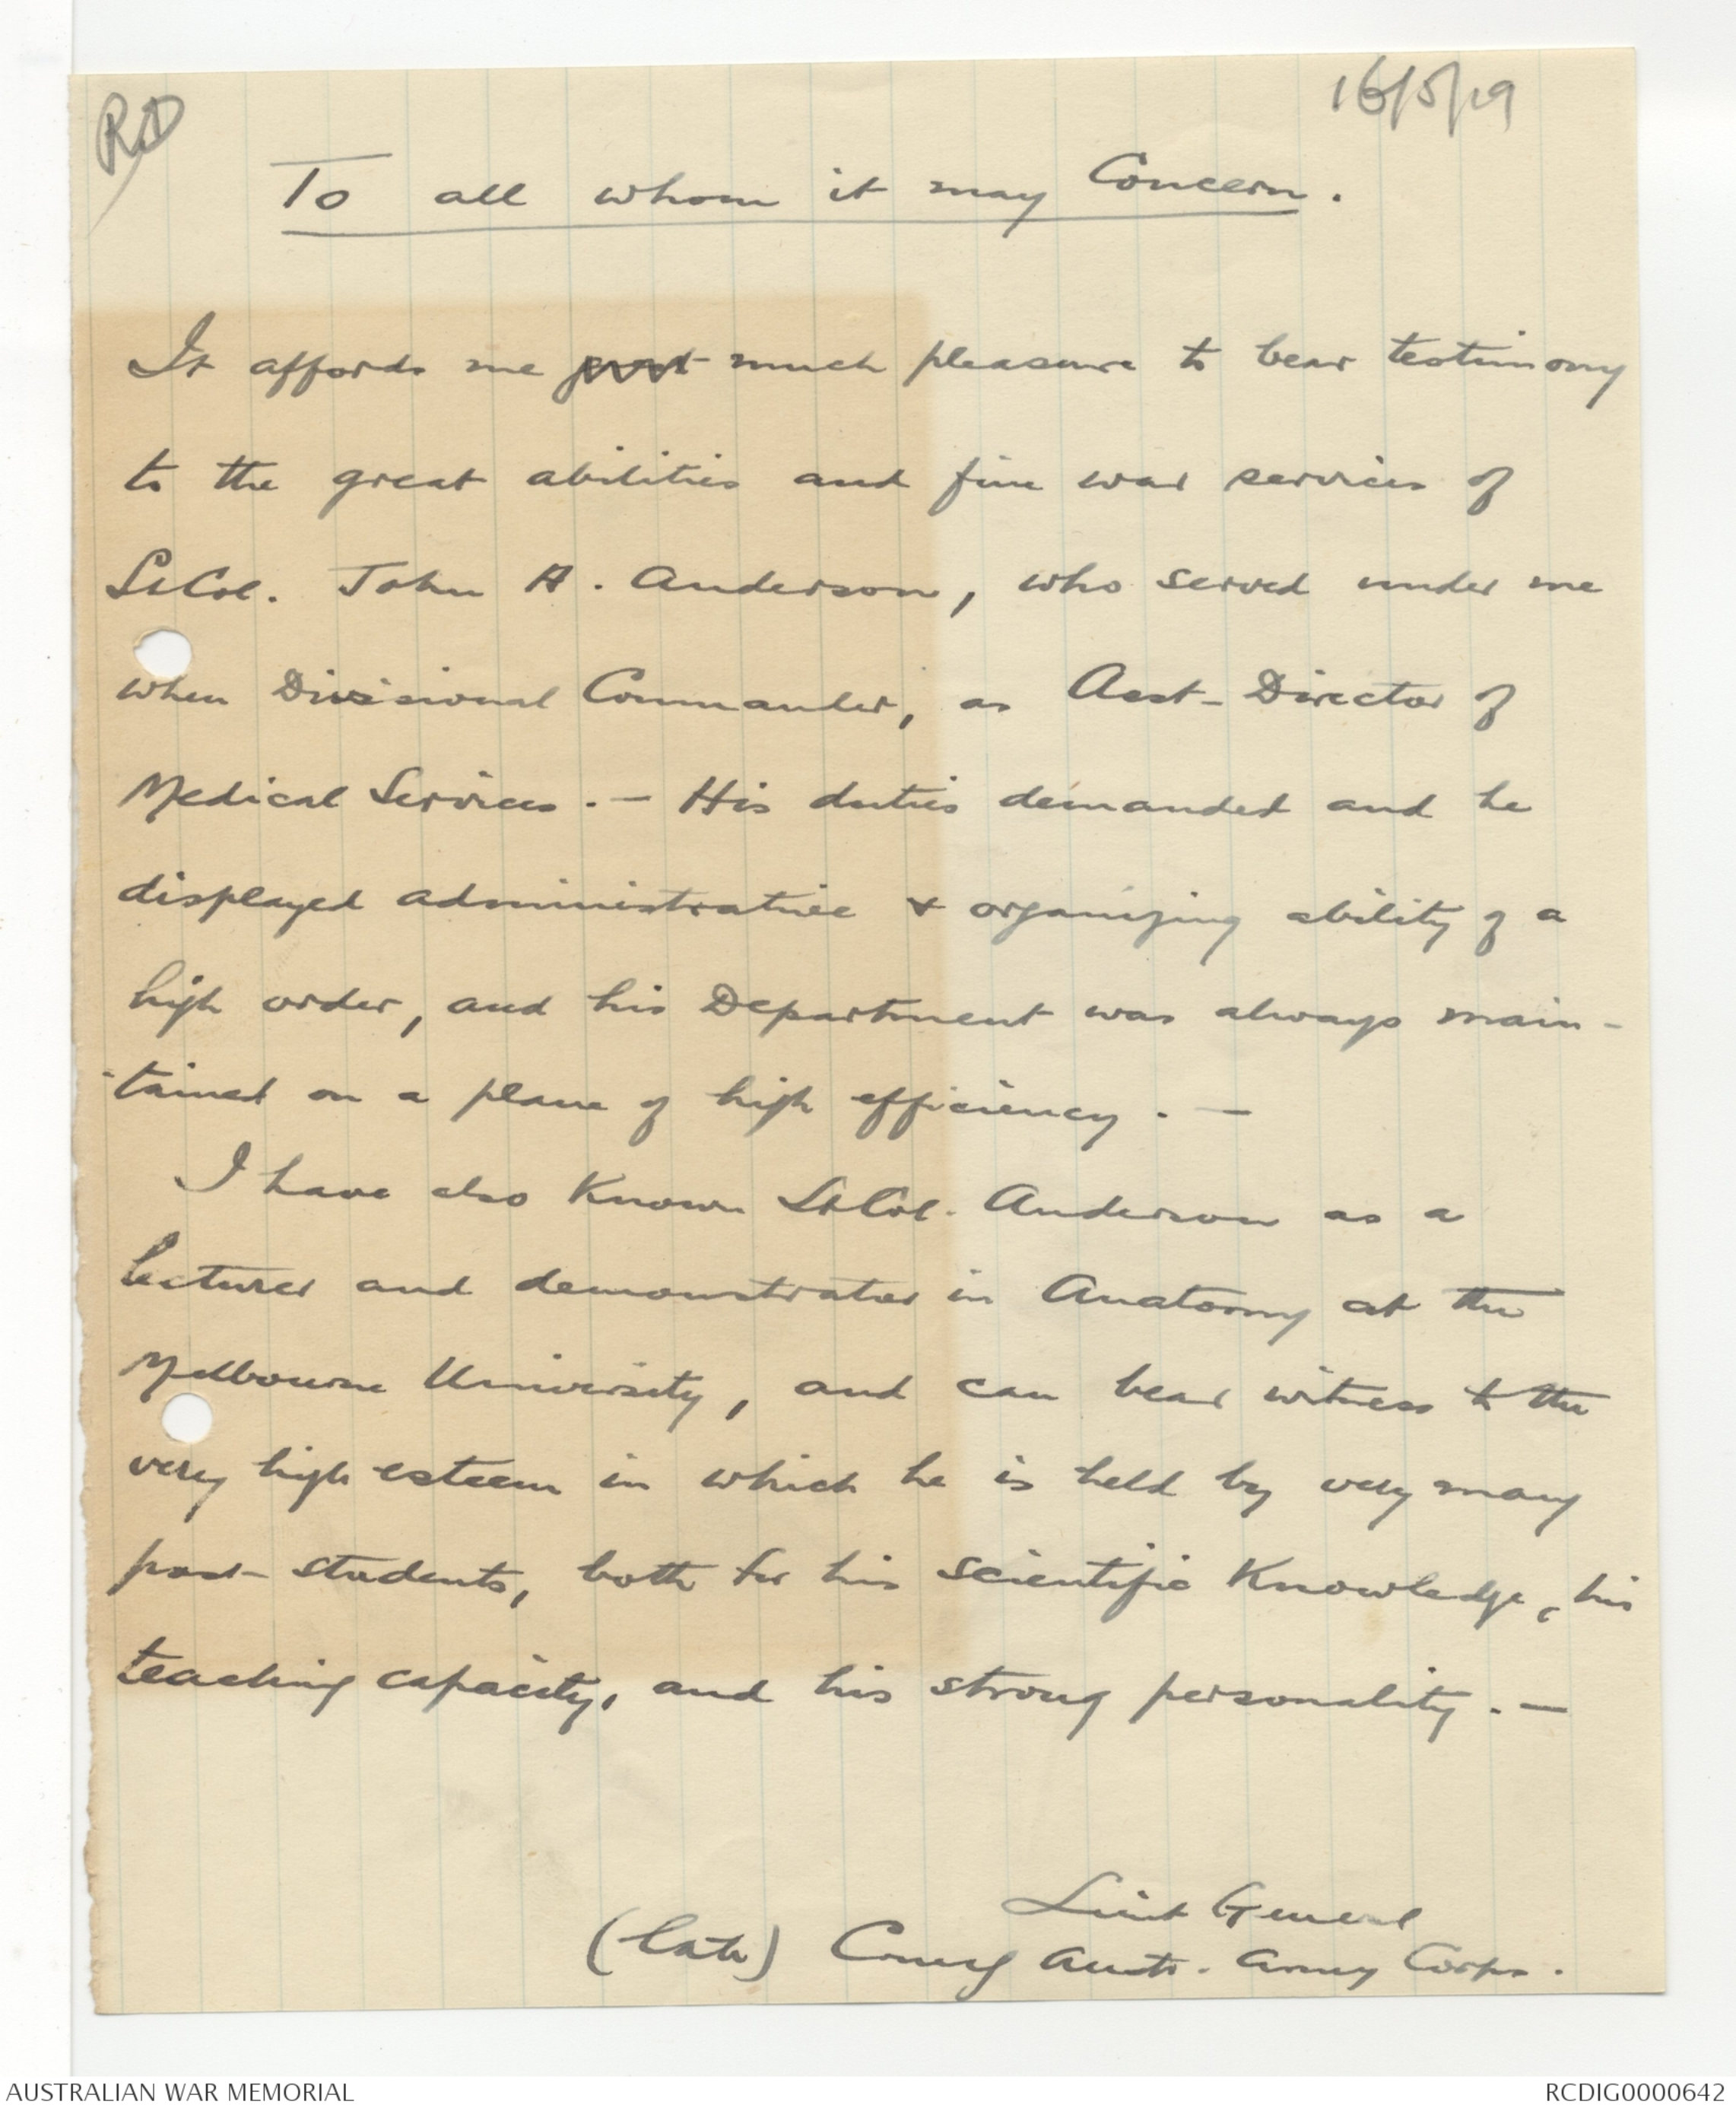 RD
16/5/19
To all whom it may Concern.
It affords me great much pleasure to bear testimony
to the great abilities and fine war services of
Lt Col. John H. Anderson, who served under me
when Divisional Commander, as Asst-Director of
Medical Services. — His duties demanded and he
displayed administrative & organizing ability of a
high order, and his Department was always main-
-tained on a plane of high efficiency. —
I have also known Lt Col. Anderson as a
lecturer and demonstrator in Anatomy at the
Melbourne University, and can bear witness to the
very high esteem in which he is held by very many
past students, both for his scientific knowledge, his
teaching capacity, and his strong personality. —
Lieut General
(late) Comdg Austr. Army Corps.
AUSTRALIAN WAR MEMORIAL
RCDIG0000642